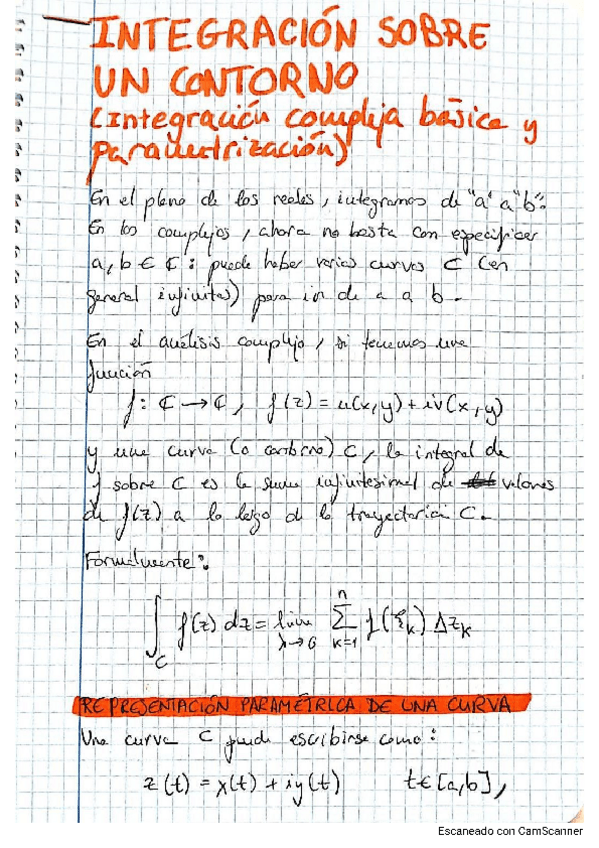 INTEGRACIÓN SOBRE
UN CONTORNO
(Integración compleja básica y
parametrización)
En el plano de los reales, integramos de "a" a "b".
En los complejos, ahora no basta con especificar
a, b ∈ ℂ: puede haber varias curvas C (en
general infinitas) para ir de a a b.
En el análisis complejo, si tenemos una
función
f: ℂ → ℂ, f(z) = u(x,y) + iv(x,y)
y una curva (o contorno) C, la integral de
f sobre C es la suma infinitesimal de valores
de f(z) a lo largo de la trayectoria C.
Formalmente:
∫_C f(z) dz = lim_{λ→0} ∑_{k=1}^{n} f(ξ_k) Δz_k
REPRESENTACIÓN PARAMÉTRICA DE UNA CURVA
Una curva C puede escribirse como:
z(t) = x(t) + iy(t) t ∈ [a,b],
Escaneado con CamScanner